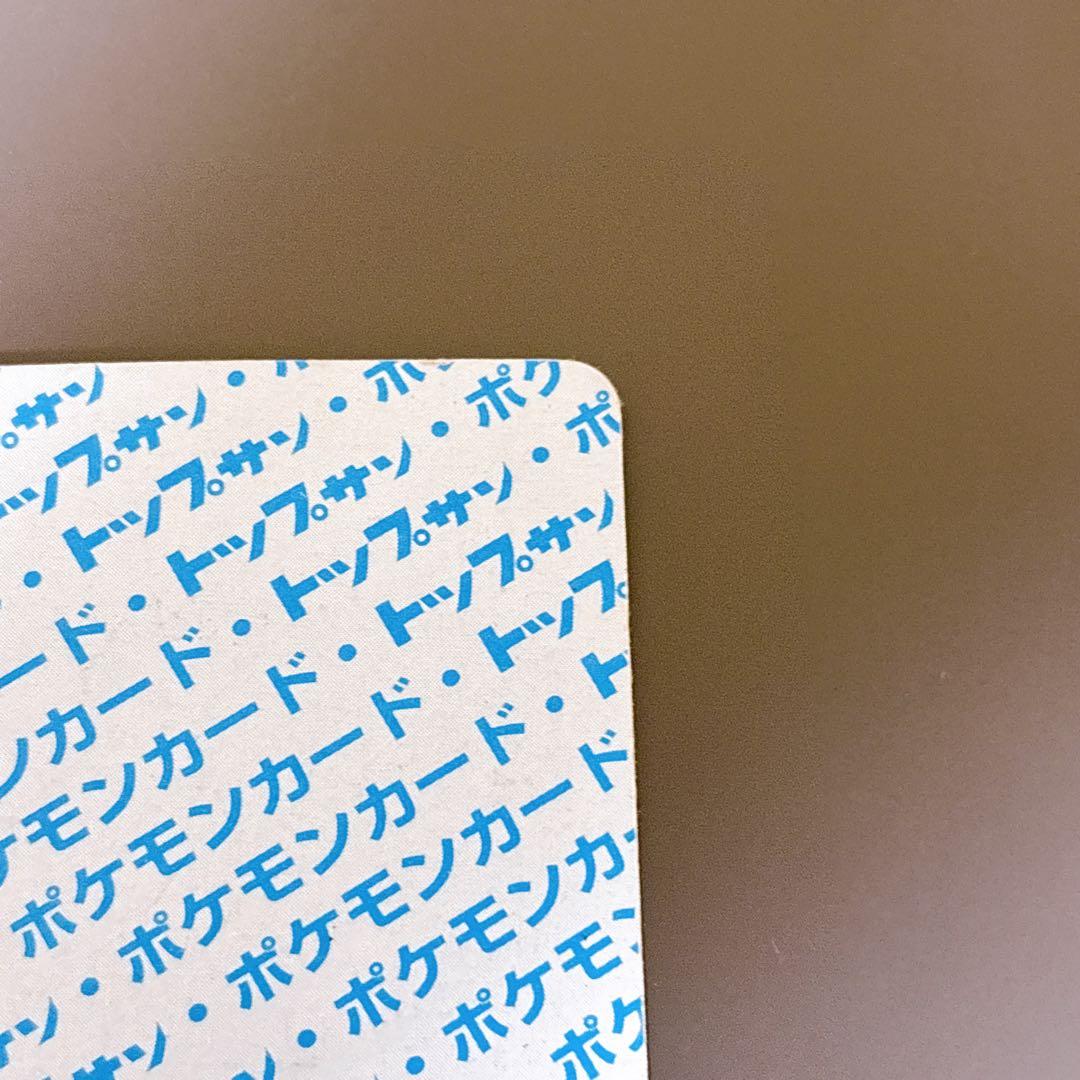 サン
ップサン・
・トップサン・ポ
ード・トップサン・ポケ
ンカード・トップサン・ポ
ケモンカード・トップサン
ポケモンカード・トップ
サン・ポケモンカード・ト
サン・ポケモンカード
ン・ポケモンカ
・ポケモ
ポケ